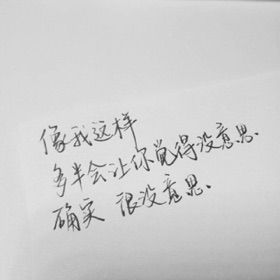 像我这样
多半会让你觉得没意思.
确实 很没意思.